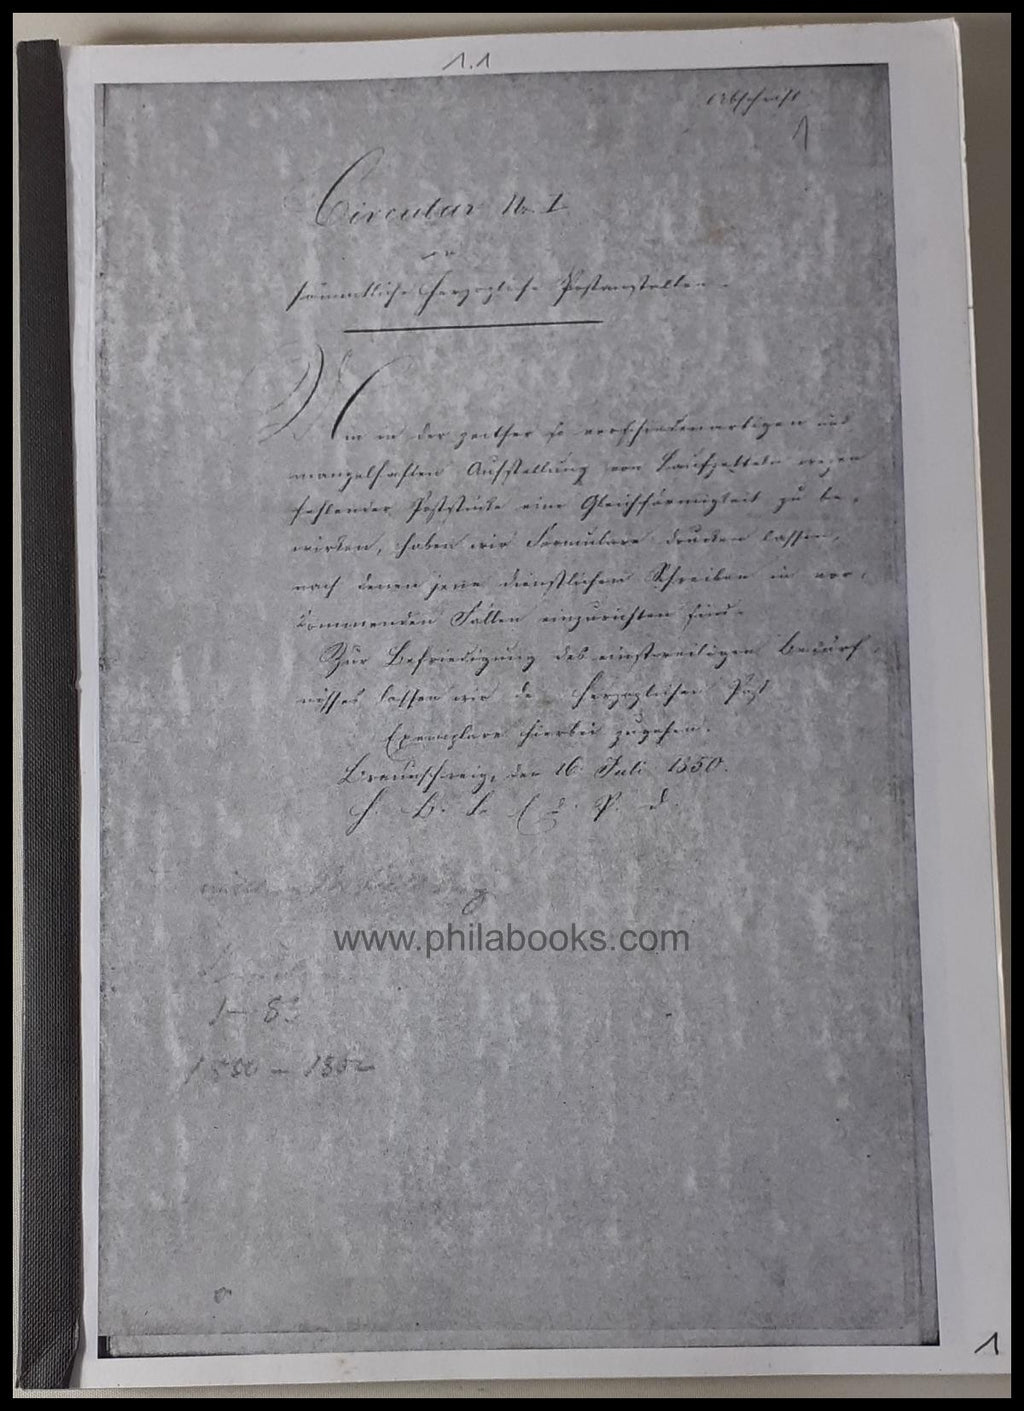 1.1
Abschrift
1
Circular No. 1
an
sämmtliche Herzogliche Postanstalten.
Um in der zeither so verschiedenartigen und
mangelhaften Aufstellung von Laufzetteln wegen
fehlender Poststücke eine Gleichförmigkeit zu be-
wirken, haben wir Formulare drucken lassen,
nach denen jene dienstlichen Schreiben in vor-
kommenden Fällen einzurichten sind.
Zur Befriedigung des einstweiligen Bedürf-
nisses lassen wir de Herzoglichen Post
Exemplare hierbei zugehen.
Braunschweig, den 16. Juli 1850.
H. B. L. E. P. d.
www.philabooks.com
1 - 8
1850 - 1852
1